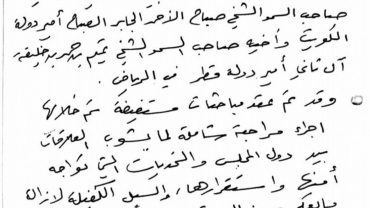 صاحب السمو الشيخ صباح الأحمد الجابر الصباح أمير دولة
الكويت وأخيه صاحب السمو الشيخ تميم بن حمد بن خليفة
آل ثاني أمير دولة قطر في الرياض.
وقد تم عقد مباحثات مستفيضة تم خلالها
اجراء مراجعة شاملة لما يشوب العلاقات
بين دول المجلس والتحديات التي تواجه
أمنها واستقرارها، والسبل الكفيلة لازالة